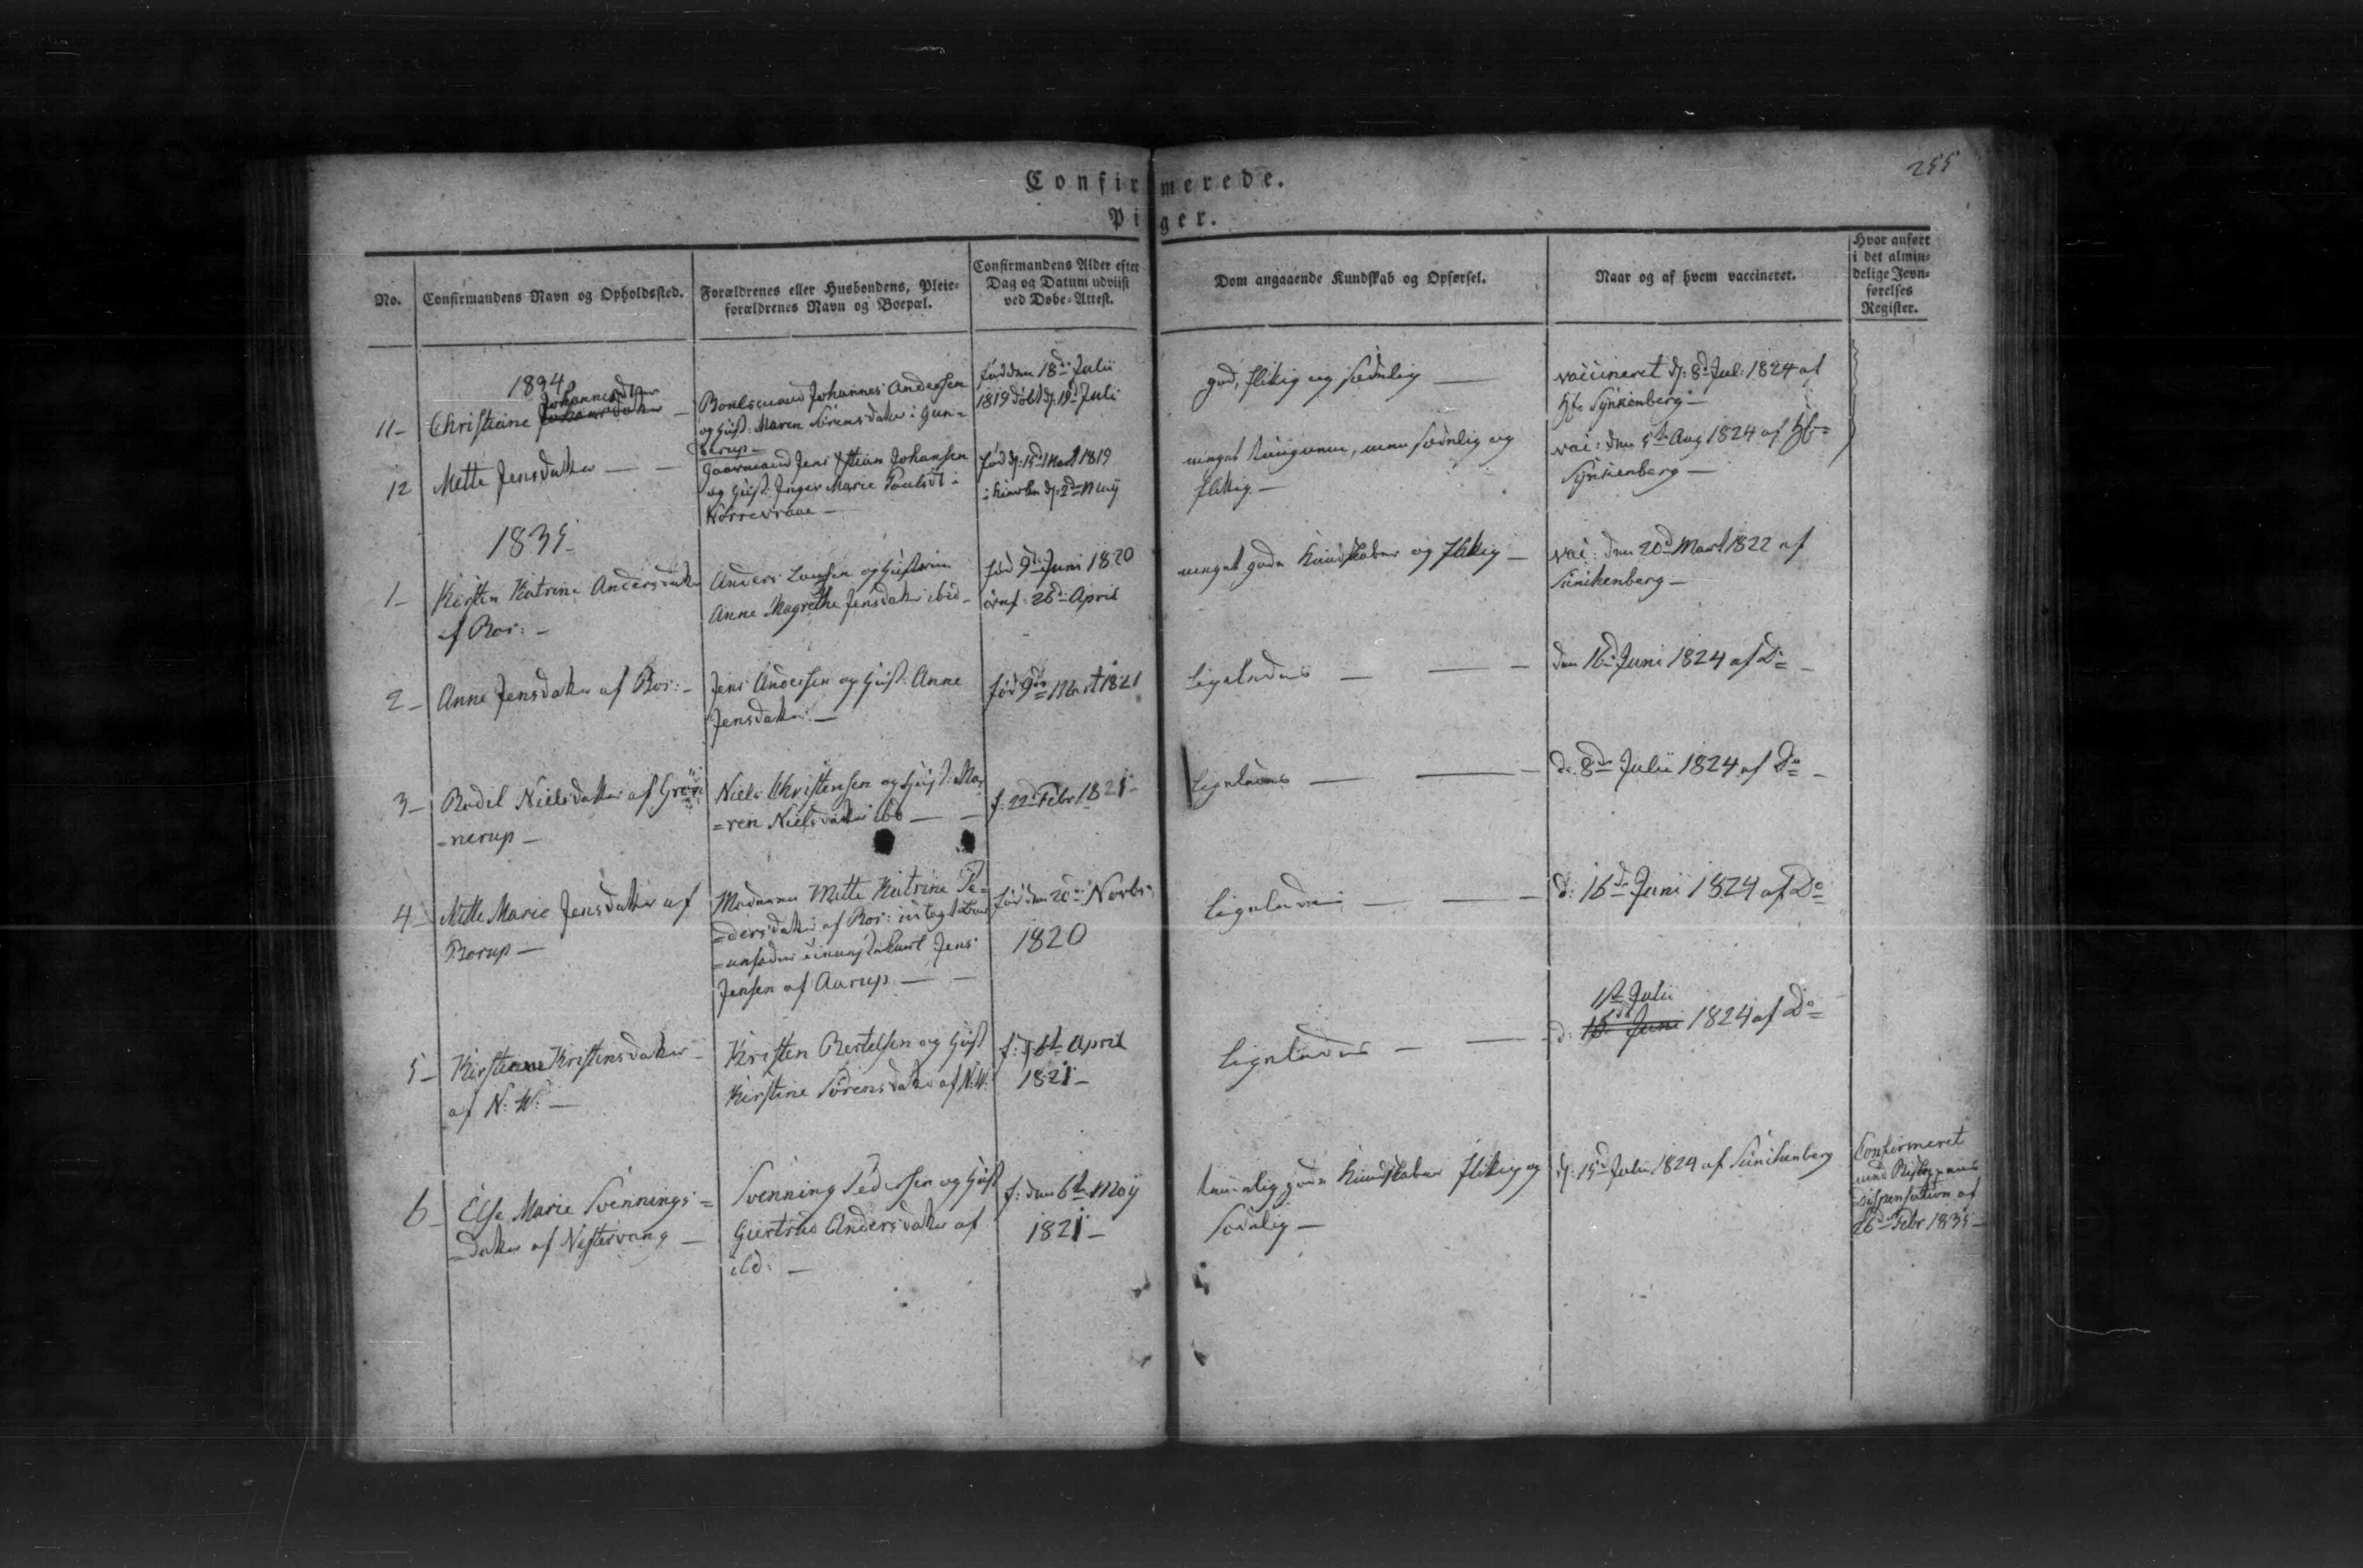 255
Confirmerede.
Piger.
No.
Confirmandens Navn og Opholdssted.
Forældrenes eller Husbondens, Pleie-
forældrenes Navn og Boepæl.
Confirmandens Alder efter
Dag og Datum udviist
ved Døbe-Attest.
Dom angaaende Kundskab og Opførsel.
Naar og af hvem vaccineret.
Hvor anført
i det almin-
delige Jevn-
førelses
Register.
1834
11-
Johannesdtter
Christiane
Johannes Andersen
og Hust: Maren Sörensdatter i Gun-
derup-
fød den 18de Julii
1819 døbt d: 19d Juli
god, flittig og sædelig
vaccineret d: 8d Jul: 1824 af
Synkenberg
12
Mette Jensdatter
Gaardmand Jens Johansen
og Hust: Inger Marie Poulsdt i
Nörrevraae
fød d: 15d Mart 1819
i Kirken d: 2d Maij
meget tungnem, men sædelig og
flittig
vac: den 5te Aug 1824 af
Synkenberg
1835
1-
Kirsten Katrine Andersdatter
af Ros:
Anders og Hustrue
Anne Magrethe Jensdatter ibid
fød 9de Juni 1820
26de April
meget gode Kundskaber og flittig
vac: den 20d Mart 1822 af
Sünckenberg
2-
Anne Jensdatter af Ros:
Jens Andersen og Hust: Anne
Jensdatter
fød 9de Mart 1821
Ligeledes
den 16d Juni 1824 af Do
3-
Bodil Nielsdatter af
-nerup
Niels Christensen og Hust: Ma-
=ren Nielsdatter ibd
f: 22d Febr 1821
Ligeledes
d: 8de Julii 1824 af Do
4-
Mette Marie Jensdatter af
Borup
Moderen Mette Katrine Pe-
=dersdatter af Ros:
Jens
Jensen af Aarup
fød den 20de Novbr
1820
Ligeledes
d: 16de Juni 1824 af Do
5-
Kristensdatter
af N: W:
Kristen Bertelsen og Hust
Kirstine Sörensdatter af N: W:
f: d 6te April
1821
Ligeledes
1ste Julii
d: 16de Juni 1824 af Do
6-
Else Marie Svennings=
=datter af Vestervang
Svenning Pedersen og Hust
Giertrud Andersdatter af
ibd:
f: den 6te Maij
1821
temmelig gode Kundskaber flittig og
sædelig
d: 15d Julii 1824 af Sünckenberg
Confirmeret
med Biskoppens
Dispensation af
26de Febr 1835